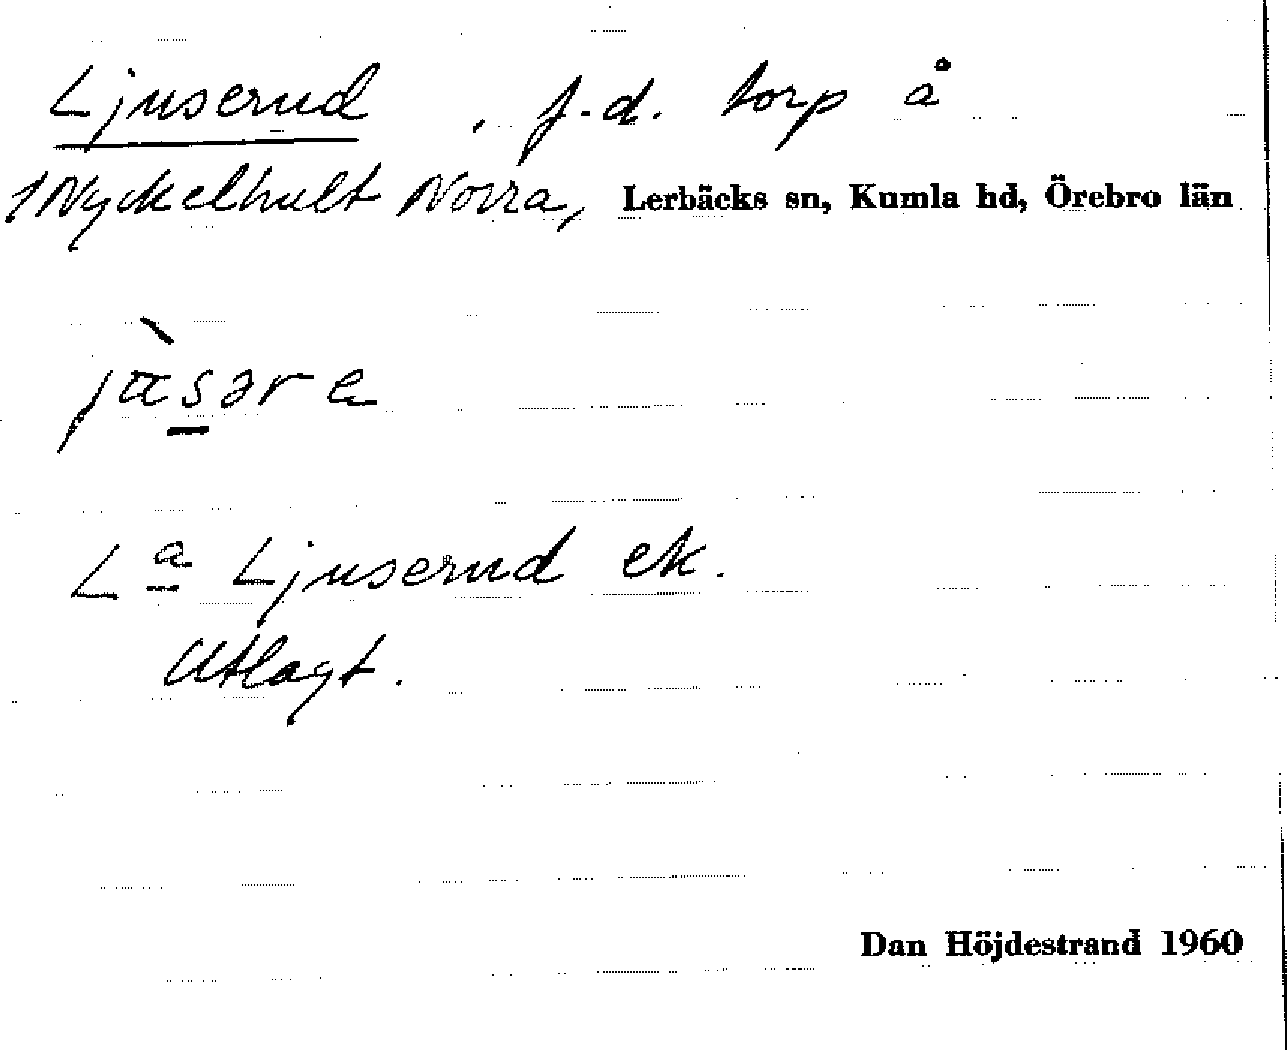 Ljuserud, f.d. torp å
1 Nyckelhult Norra, Lerbäcks sn, Kumla hd, Örebro län
L a Ljuserud ek.
Utlagt.
Dan Höjdestrand 1960